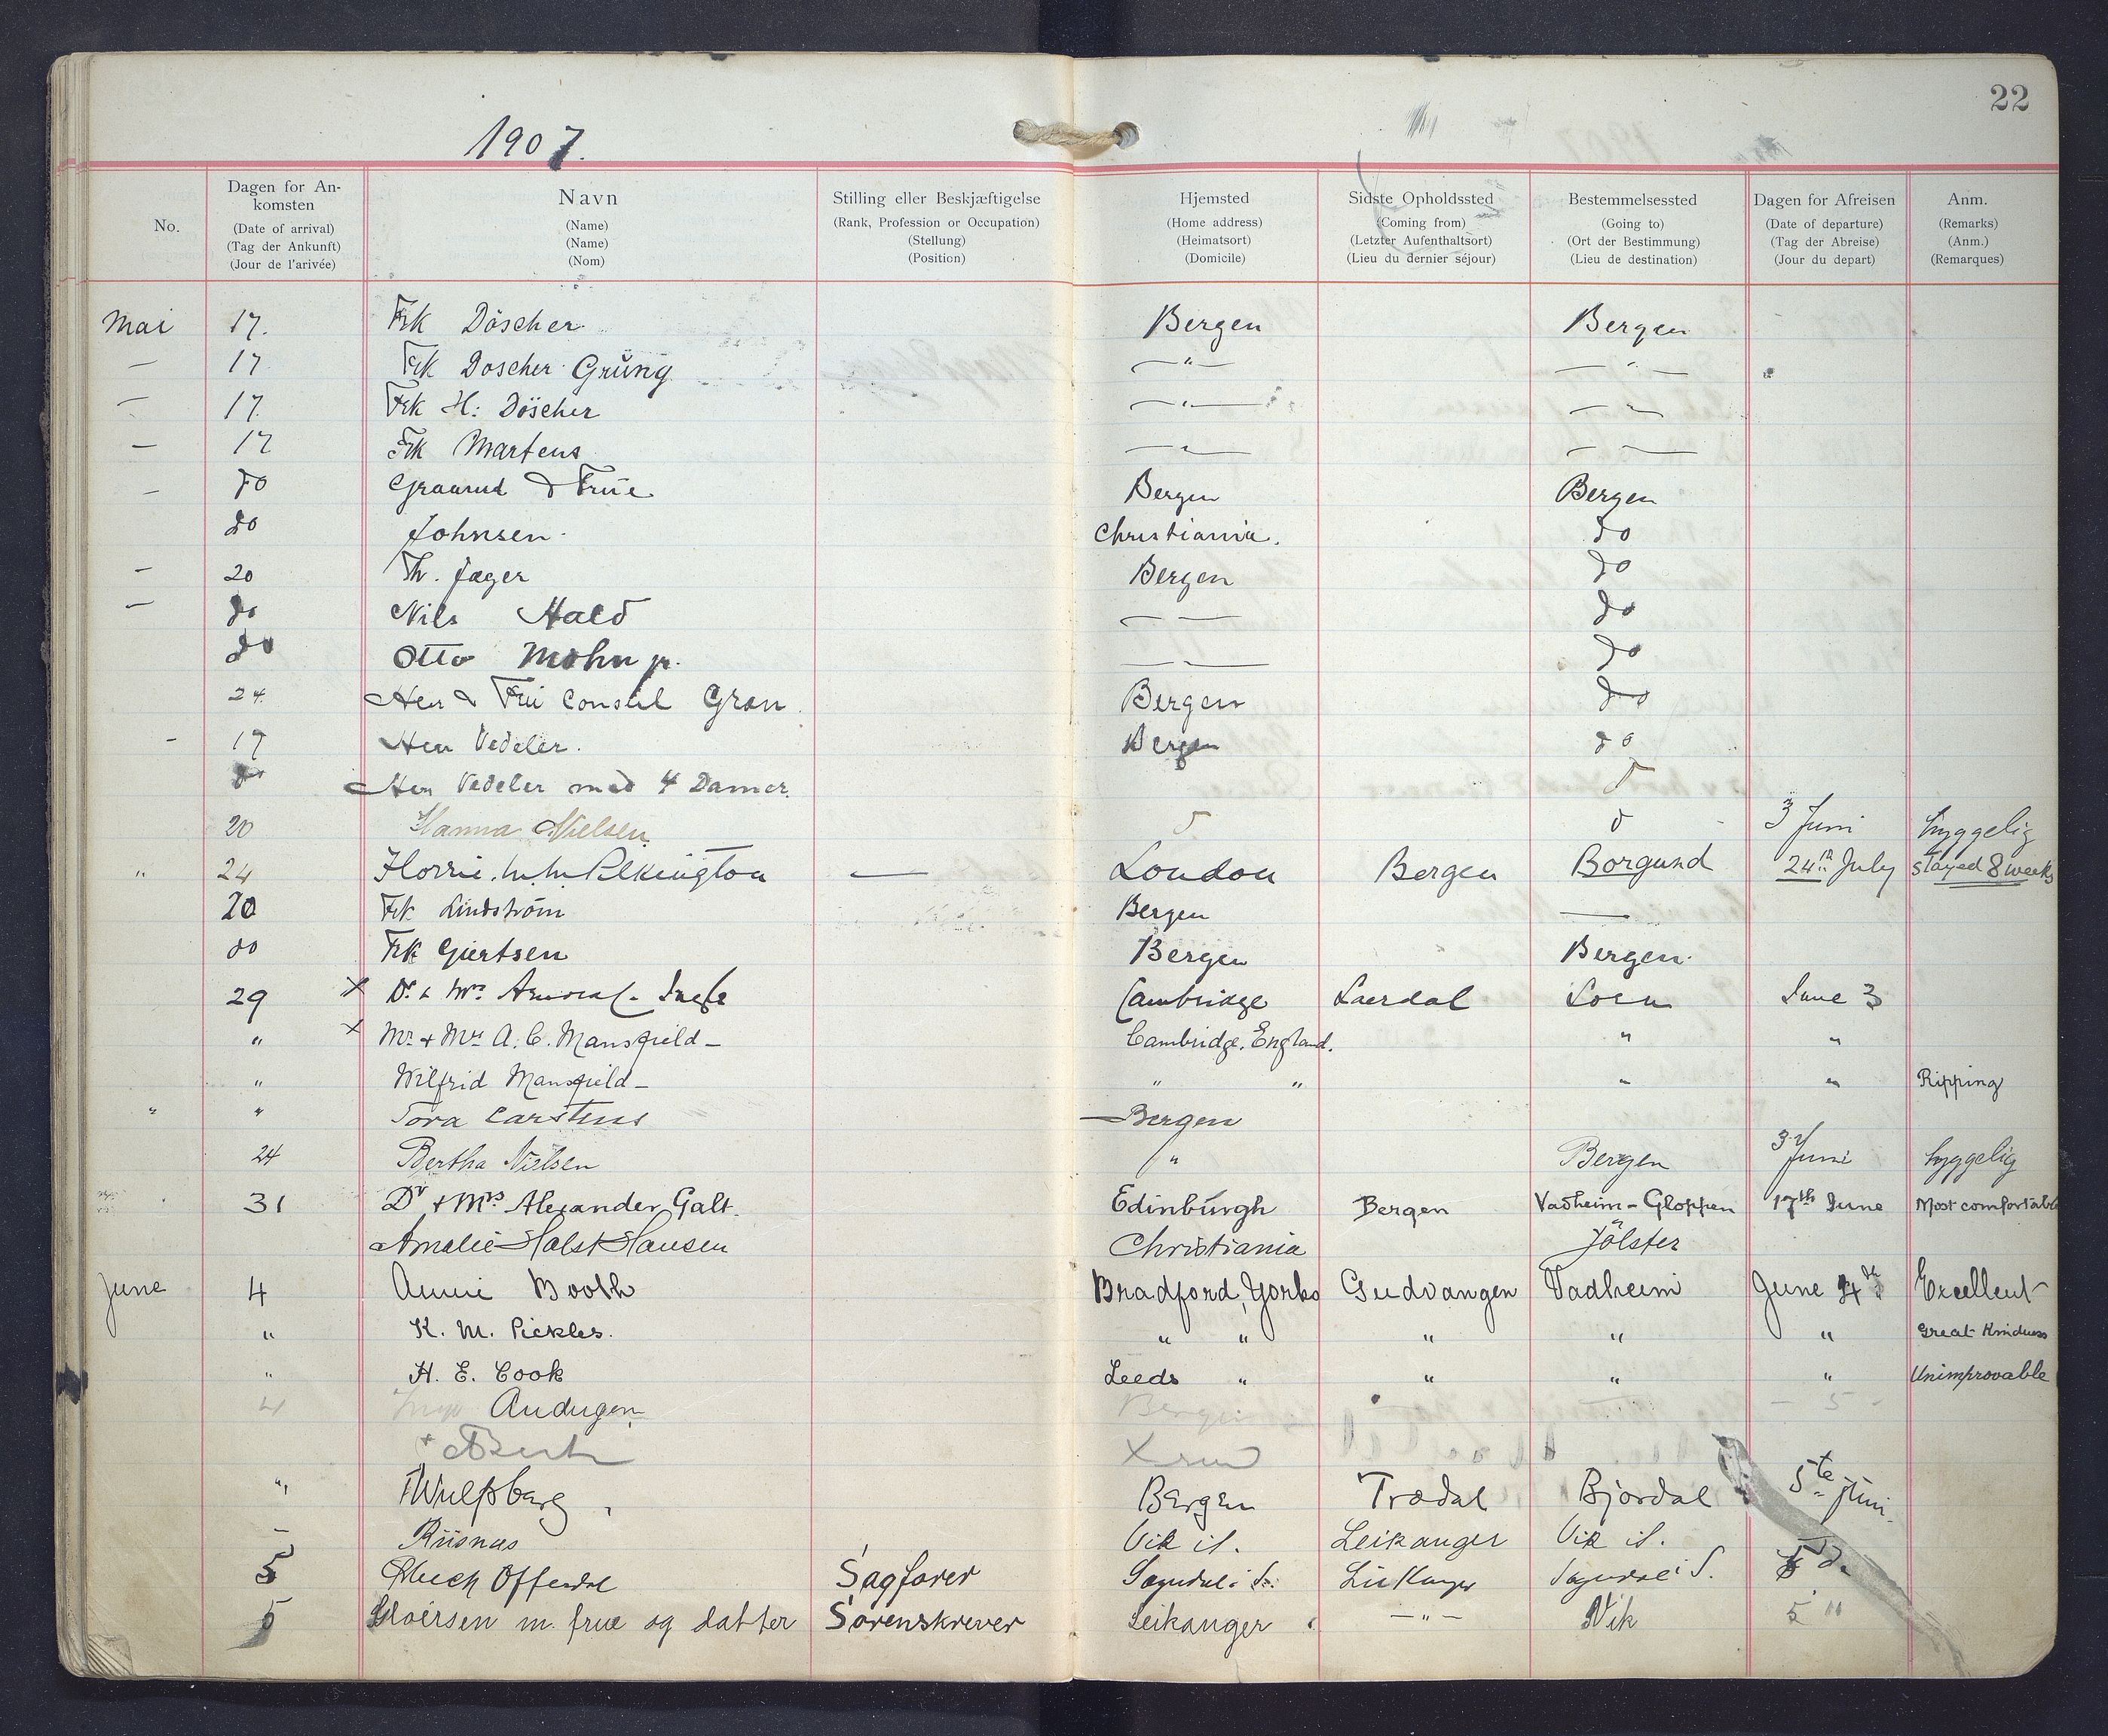 22
1907.
No. Dagen for Ankomsten (Date of arrival) (Tag der Ankunft) (Jour de l'arivée) Navn (Name) (Name) (Nom) Stilling eller Beskjæftigelse (Rank, Profession or Occupation) (Stellung) (Position) Hjemsted (Home address) (Heimatsort) (Domicile) Sidste Opholdssted (Coming from) (Letzter Aufenthaltsort) (Lieu du dernier séjour) Bestemmelsessted (Going to) (Ort der Bestimmung) (Lieu de destination) Dagen for Afreisen (Date of departure) (Tag der Abreise) (Jour du depart) Anm. (Remarks) (Anm.) (Remarques)
Mai 17. Frk Döscher Bergen Bergen
— 17 Frk Doscher Grüng —"— —"—
— 17. Frk H: Döscher —"— —"—
— 17 Frk Martens —"— —"—
— do Graarud & Frue Bergen Bergen
do Johnsen Christiania. do
— 20 Th. Jæger Bergen do
— do Nils Hald — — do
do Otto Mohn jr. — — do
24. Herr & Fru Consul Gran Bergen do
- 17 Herr Vedeler. Bergen do
do Herr Vedeler med 4 Damer.
20 Hanna Nielsen 3 Juni hyggelig
" 24 Florrie Pilkington — London Bergen Borgund 24th July stayed 8 weeks
20 Frk Lindstrøm Bergen —
do Frk Giertsen Bergen Bergen
29 x Dr & Mrs Cambridge Laerdal Loen June 3
" x Mr & Mrs A. C. Mansfield — Cambridge, England. " "
" Wilfrid Mansfield — " " " " Ripping
" " Tora Carstens Bergen
24 Bertha Nielsen " Bergen 3 Juni hyggelig
31 Dr & Mrs Alexander Galt. Edinburgh Bergen Vadheim - Gloppen 17th June Most comfortable
Amalie Holst Hansen Christiania Jölster
June 4 Annie Booth Bradford, Yorks Gudvangen Vadheim June 4th Excellent
" K. M. Pickles. " " " " " Great Kindness
" H. E. Cook Leeds " " " " Unimprovable
4 Bergen - 5 -
" Wulfsberg Bergen Trædal Bjordal 5te juni.
— Riisnæs Vik i S. Leikanger Vik i S.
5 Offerdal Sagfører Sogndal i S. Leikanger Sogndal i S. 5 d.
5 m. frue og datter Sorenskriver Leikanger —"— Vik 5 "